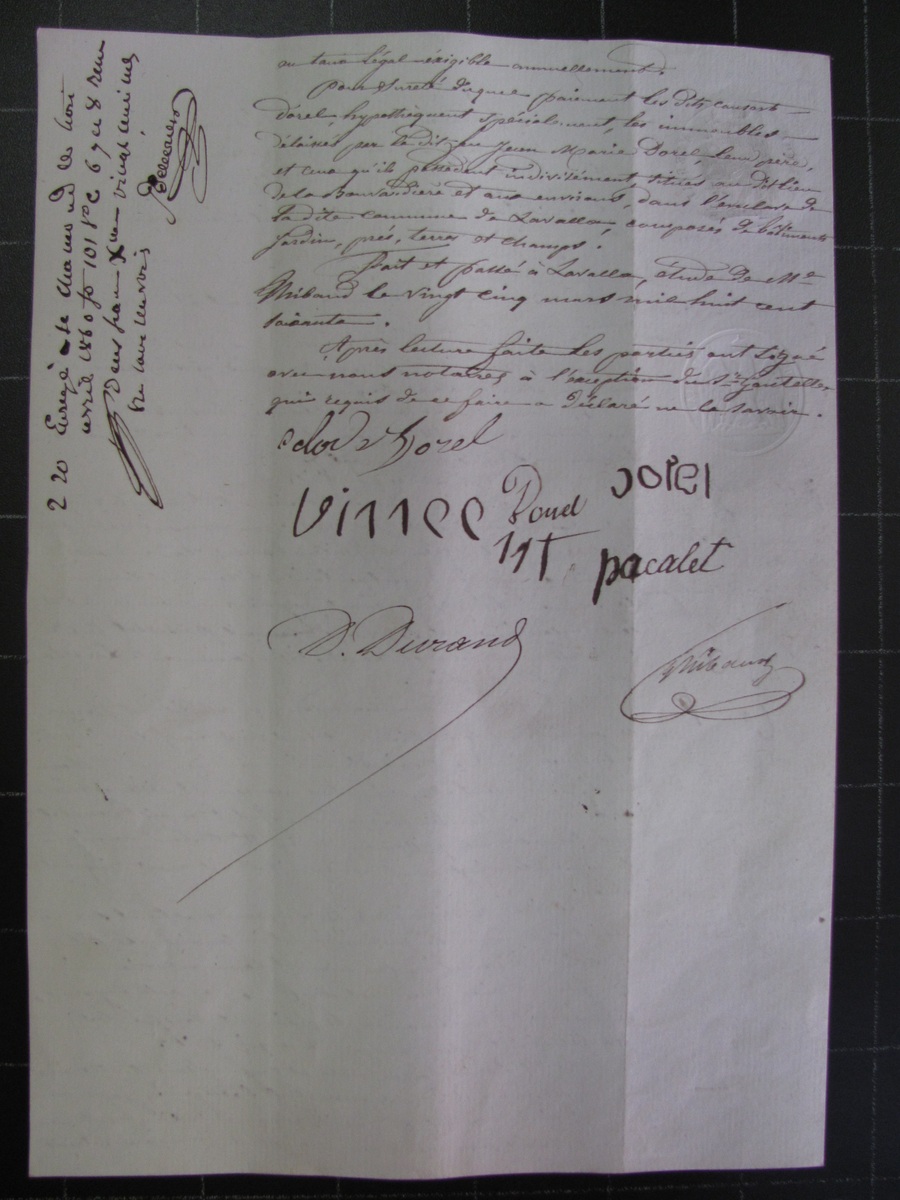 au taux légal exigible annuellement.
Pour sureté duquel paiement les dits consorts
Dorel, hypothèquent spécialement, les immeubles,
délaissés par le dit feu Jean Marie Dorel, leur père,
et ceux qu'ils possèdent indivisément situés au dit lieu
de la et aux environs, dans l'enclave de
la dite commune de Lavalla, composés de bâtiments
Jardin, prés, terres et champs.
Fait et passé à Lavalla, étude de Me
Thibaud le vingt cinq mars mil huit cent
soixante.
Après lecture faite les parties ont signé
avec nous notaires à l'exception du Sr
qui requis de ce faire a déclaré ne le savoir.
Dorel
Dorel
pacalet
D. Durand
Thibaud
2 20
Enregé à St Chamond le huit
avril 1860 fo 101 Vo C 6 7 et 8 Reçu
Deux francs vingt centimes